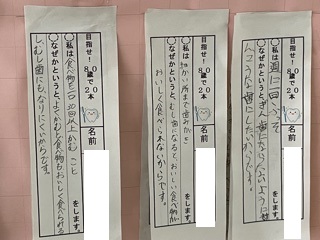 目指せ！
80歳で20本
名前
○私は食べ物を一つ30回以上かむこと
をします。
○なぜかというとよくかむと食べ物もおいしく食べられる
し、むし歯にもなりにくいからです。
目指せ！
80歳で20本
名前
○私は細かい所まで歯みがき
をします。
○なぜかというと、むし歯になると、おいしい食べ物が
おいしく食べられないからです。
目指せ！
80歳で20本
名前
○私は週に一回フッ素
をします。
○なぜかというと